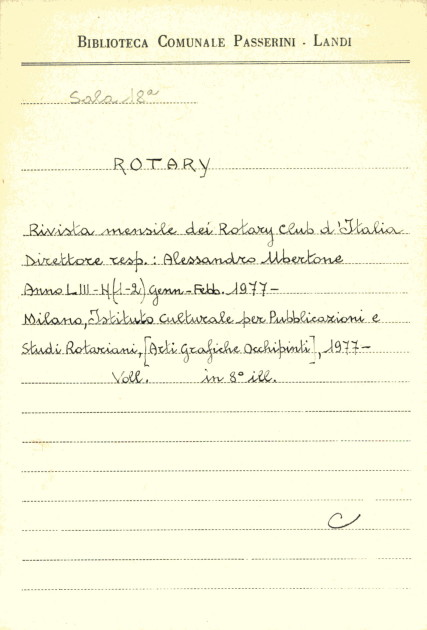 BIBLIOTECA COMUNALE PASSERINI - LANDI
Sala 18ª
ROTARY
Rivista mensile dei Rotary Club d'Italia
Direttore resp.: Alessandro Ubertone
Anno LIII - N(1-2) Genn-Febb. 1977-
Milano, Istituto Culturale per Pubblicazioni e
Studi Rotariani, [Arti Grafiche Occhipinti], 1977-
Voll. in 8° ill.
C